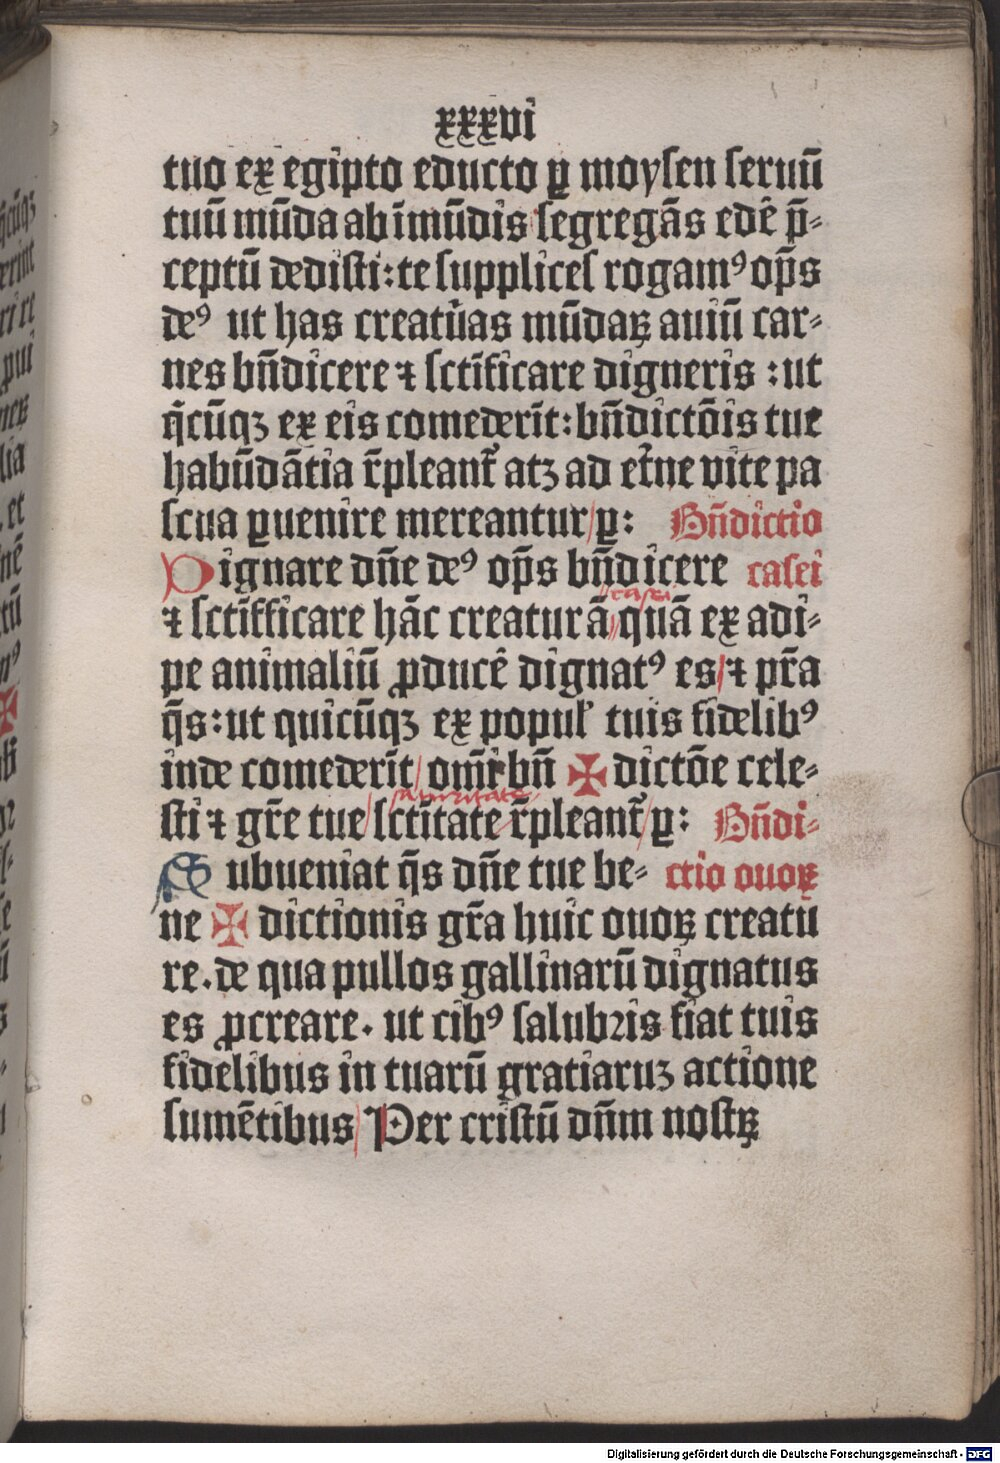 xxxvi
tuo ex egipto educto ꝑ moyſen ſeruū
tuū mūda ab īmūdis ſegregās edē p̄⸗
ceptū dediſti : te ſuppliceſ rogamꝰ op̄s
deꝰ ut has creatur̄as mūdaꝝ auiū car⸗
nes bn̄dicere ⁊ ſctīficare digneris : ut
q̄cūqꝫ ex eis comederīt : bn̄dictōis tue
habūdātia r̄pleant᷑ atꝫ ad et̄ne vite pa
ſcua ꝑuenire mereantur / ꝑ : Bn̄dictio
Dignare dn̄e deꝰ op̄s bn̄dicere caſei
caſei
⁊ ſctīfficare hāc creaturā quā ex adi⸗
pe animaliū ꝓducē dignatꝰ es / ⁊ pr̄a
q̄s : ut quicūqꝫ ex popul̛ tuis fidelibꝰ
inde comederīt / om̄i bn̄ ✠ dictōe cele⸗
ſaturitate
ſti ⁊ gr̄e tue / ſctītate r̄pleant᷑ / ꝑ : Bn̄di⸗
Subueniat q̄s dn̄e tue be⸗ ctio ouoꝝ
ne ✠ dictionis gr̄a huic ouoꝝ creatu
re . de qua pullos gallinarū dignatus
es ꝓcreare . ut cibꝰ ſalubꝛis fiat tuis
fidelibus in tuarū gratiaruꝫ actione
ſumētibus / Per criſtū dn̄m noſtꝝ
Digitalisierung gefördert durch die Deutsche Forschungsgemeinschaft - DFG